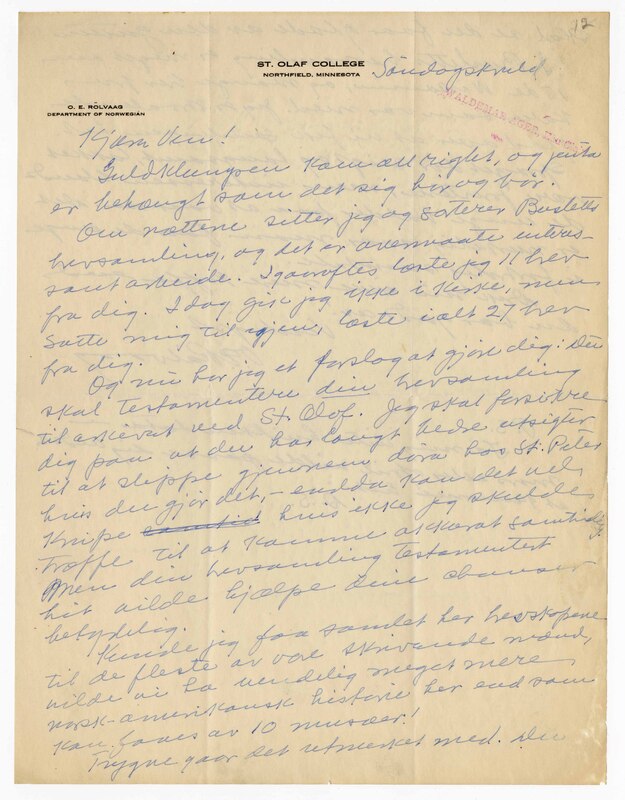 12
ST. OLAF COLLEGE
NORTHFIELD, MINNESOTA
Søndagskveld
WALDEMAR AGER
O. E. RÖLVAAG
DEPARTMENT OF NORWEGIAN
Kjære Ven!
Guldklumpen kom all right, og jenta
er behængt som det sig bør og bør.
Om nættene sitter jeg og sorterer Busletts
brevsamling, og det er overmaate interes-
sant arbeide. Igaaraftes læste jeg 11 brev
fra dig. Idag gik jeg ikke i Kirke, men
satte mig til igjen, læste ialt 27 brev
fra dig.
Og nu har jeg et forslag at gjøre dig: Du
skal testamentere din brevsamling
til arkivet ved St. Olaf. Jeg skal forsikre
dig paa at du har langt bedre utsigter
til at slippe gjennem døra hos St. Peter
hvis du gjør det, – endda kan det vel
knipe hvis ikke jeg skulde
træffe til at komme akkurat samtidig.
Men din brevsamling testamentert
hit vilde hjælpe dine chanser
betydelig.
Kunde jeg faa samlet her brevskapene
til de fleste av vore skrivende mænd,
vilde vi ha uendelig meget mere
norsk-amerikansk historie her end som
kan faaes av 10 musæer!
Trygve gaar det utmerket med. Du